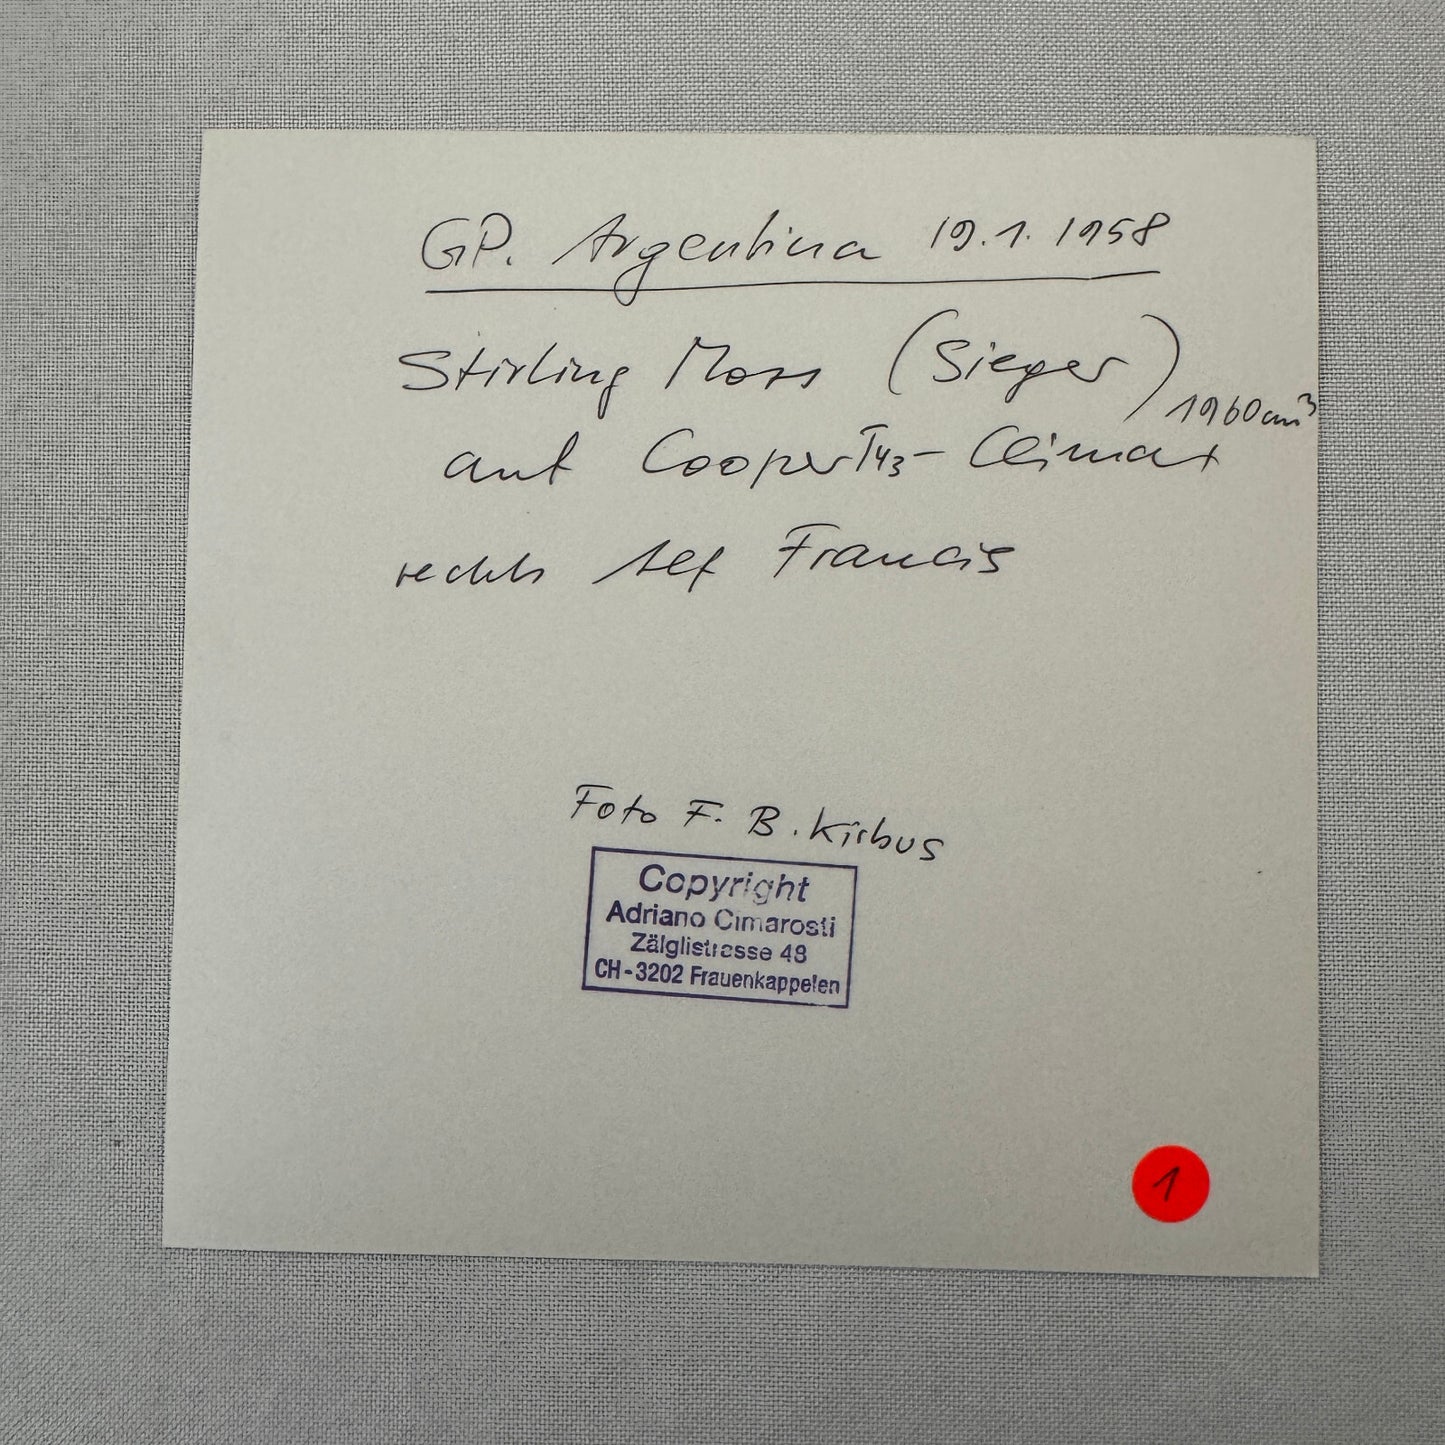 GP. Argentina 19.1.1958
Stirling Moss (Sieger)
1960 cm³
auf Cooper T43 - Climax
rechts Alf Francis
Foto F. B. Kirbus
Copyright
Adriano Cimarosti
Zälglistrasse 48
CH-3202 Frauenkappelen
1